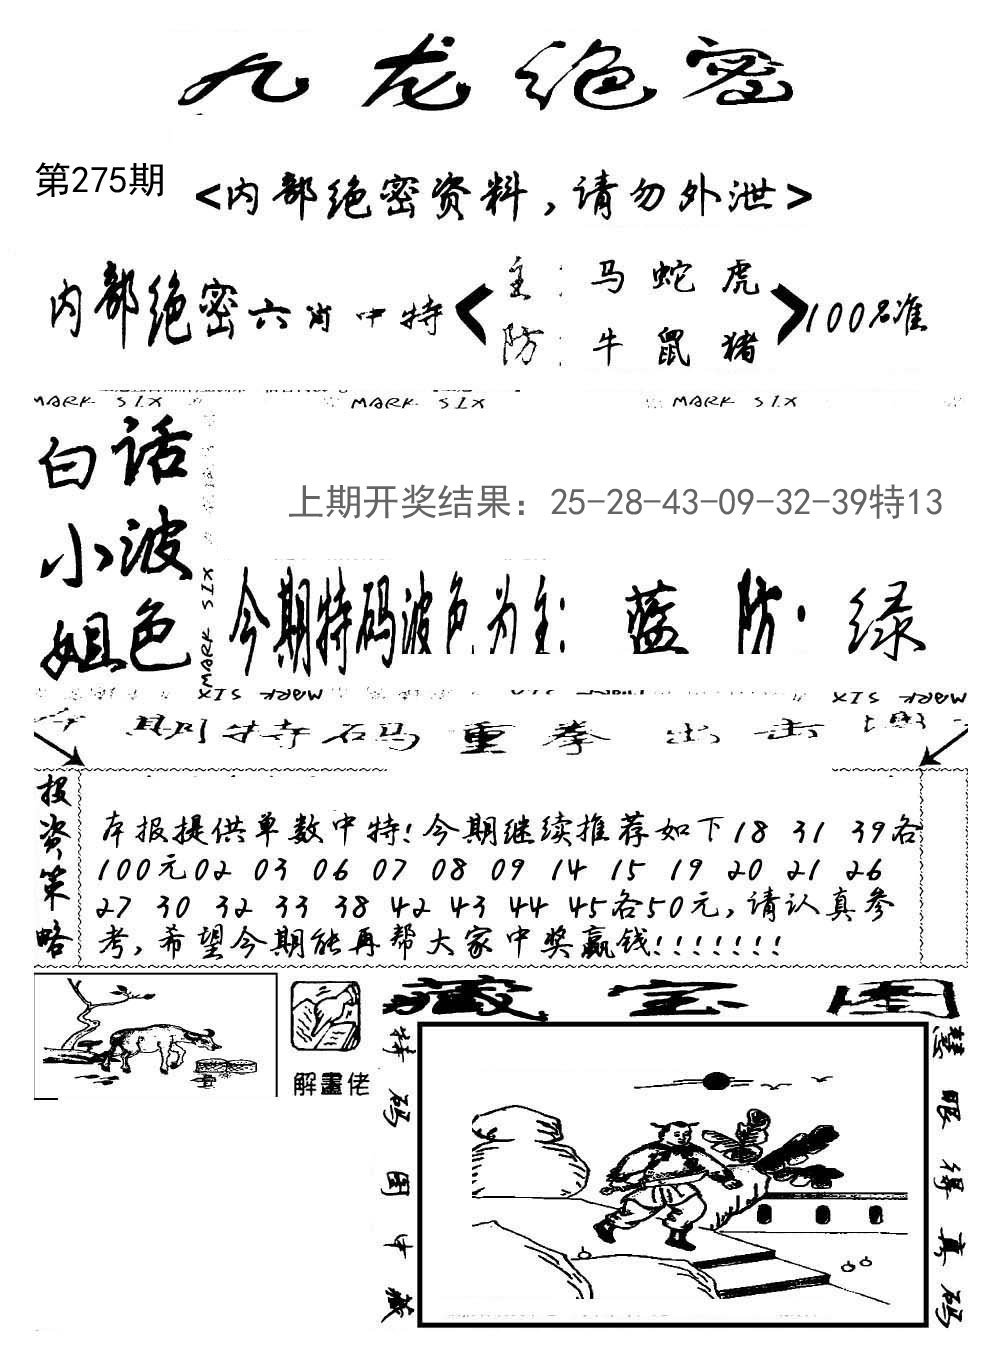 九龙绝密
第275期
<内部绝密资料，请勿外泄>
内部绝密六肖中特
主：马蛇虎
防：牛鼠猪
100%准
MARK SIX MARK SIX MARK SIX
白话
小波
姐色
MARK SIX
上期开奖结果：25-28-43-09-32-39特13
今期特码波色为主：蓝 防·绿
MARK SIX MARK SIX MARK SIX
期特码重拳出击
投资策略
本报提供单数中特!今期继续推荐如下18 31 39各
100元02 03 06 07 08 09 14 15 19 20 21 26
27 30 32 33 38 42 43 44 45各50元,请认真参
考,希望今期能再帮大家中奖赢钱!!!!!!!
解畫佬
藏宝图
特码图中藏
慧眼得真码